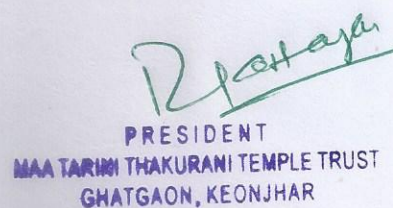 PRESIDENT
MAA TARINI THAKURANI TEMPLE TRUST
GHATGAON, KEONJHAR